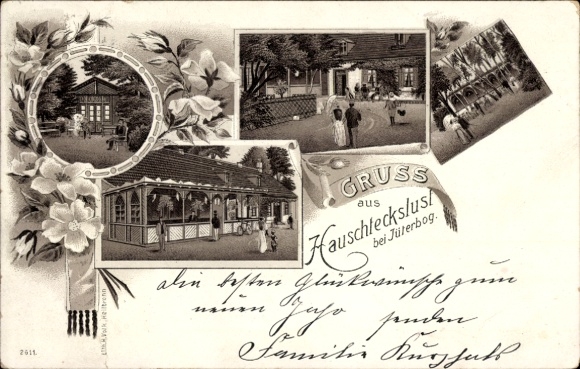 GRUSS
aus
Hauschteckslust
bei Jüterbog.
die besten Glückwünsche zum
neuen Jahr senden
Familie Kurzhals
7611.